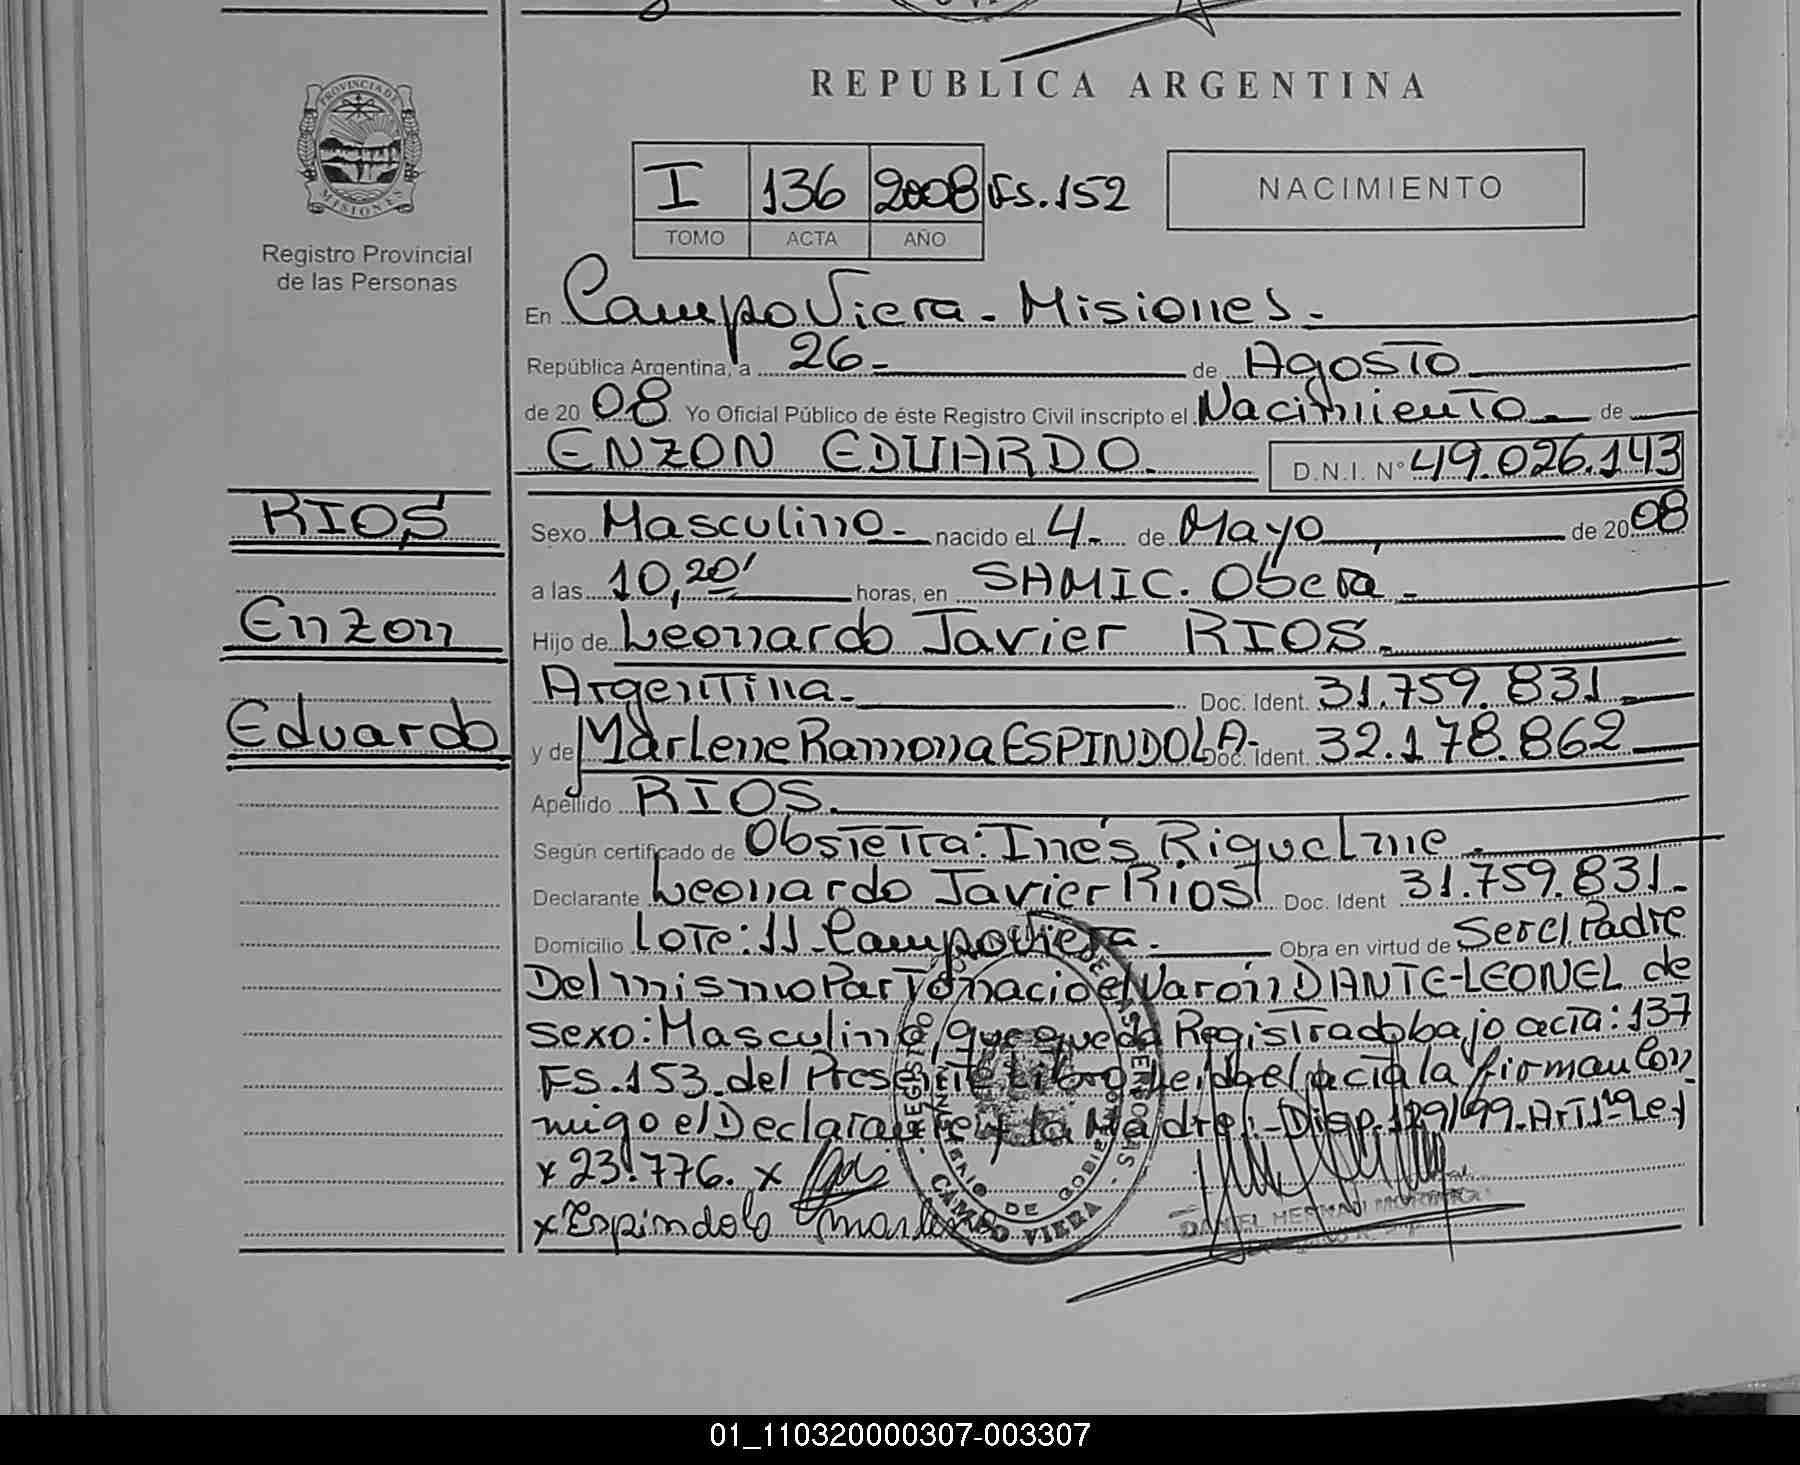 REPUBLICA ARGENTINA
PROVINCIA DE
MISIONES
Registro Provincial
de las Personas
I 136 2008 Fs.152
TOMO ACTA AÑO
NACIMIENTO
En Campo Viera - Misiones.-
República Argentina, a 26- de Agosto
de 20 08 Yo Oficial Público de éste Registro Civil inscripto el Nacimiento de
ENZON EDUARDO. D.N.I. N° 49.026.143
RIOS
Enzon
Eduardo
Sexo Masculino- nacido el 4- de Mayo de 20 08
a las 10,20' horas, en SAMIC. Oberá-
Hijo de Leonardo Javier RIOS.-
Argentina- Doc. Ident. 31.759.831-
y de Marlene Ramona ESPINDOLA- Doc. Ident. 32.178.862
Apellido RIOS.
Según certificado de Obstetra: Inés Riquelme.
Declarante Leonardo Javier Rios Doc. Ident 31.759.831-
Domicilio Lote: 11- Campo Viera. Obra en virtud de Ser el Padre
Del mismo Parto nacio el Varón DANTE-LEONEL de
sexo: Masculino, que queda Registrado bajo acta: 137
Fs.153 del Presente Libro Leida el acta la firman Con
migo el Declarante y la Madre.- Disp.129/99. Art 1º Ley
x 23.776. x
x Espindola Marlene
CAMPO VIERA
DANIEL HERNAN
01_110320000307-003307